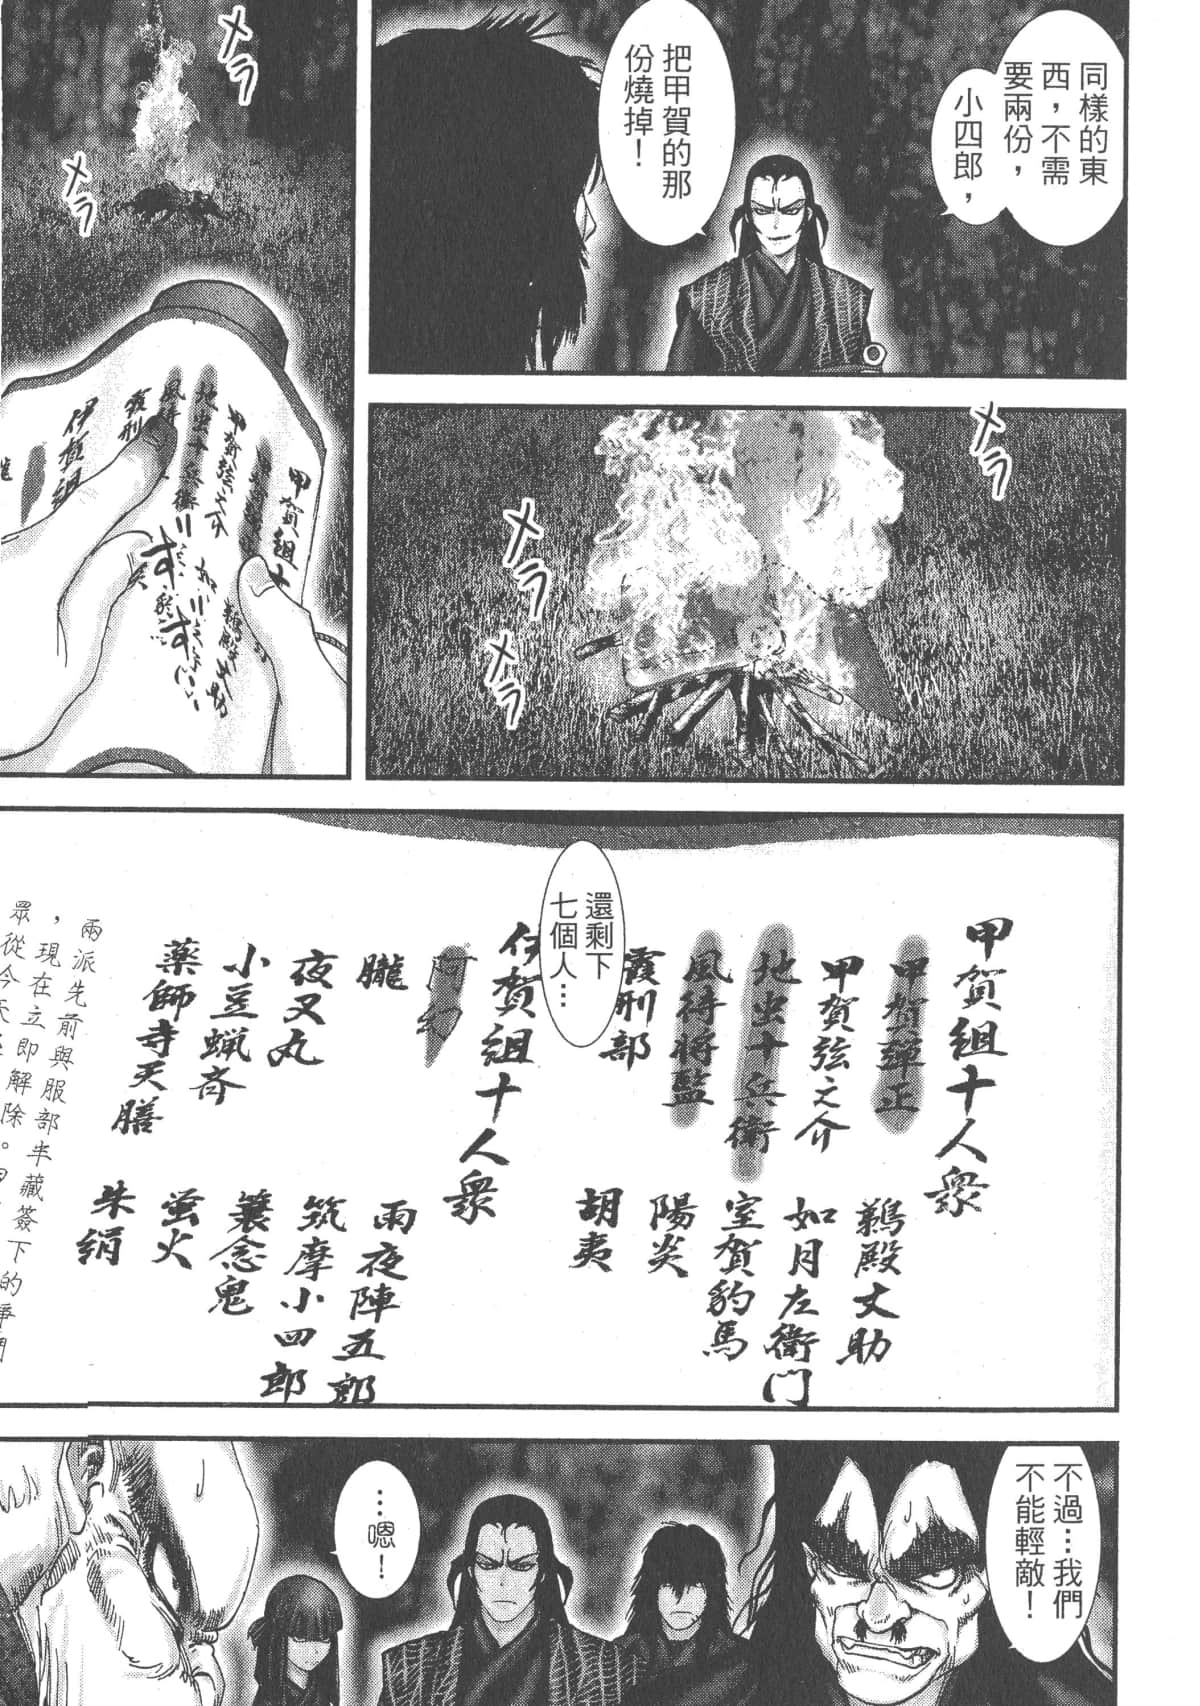 同樣的東
西，不需
要兩份，
小四郎，
把甲賀的那
份燒掉！
メラ
メラ
メラ
メラ
メラ
甲賀組十
地虫十兵衛
風待
霞刑
伊賀組
朧
甲賀組十人眾
甲賀彈正
甲賀弦之介
地虫十兵衛
風待將監
霞刑部
鵜殿丈助
如月左衛門
室賀豹馬
陽炎
胡夷
還剩下
七個人…
伊賀組十人眾
阿幻
朧
夜叉丸
小豆蝋斎
薬師寺天膳
雨夜陣五郎
筑摩小四郎
蓑念鬼
蛍火
朱絹
兩派先前與服部半藏簽下的
，現在立即解除。
眾從今天
不過…我們
不能輕敵！
…嗯！